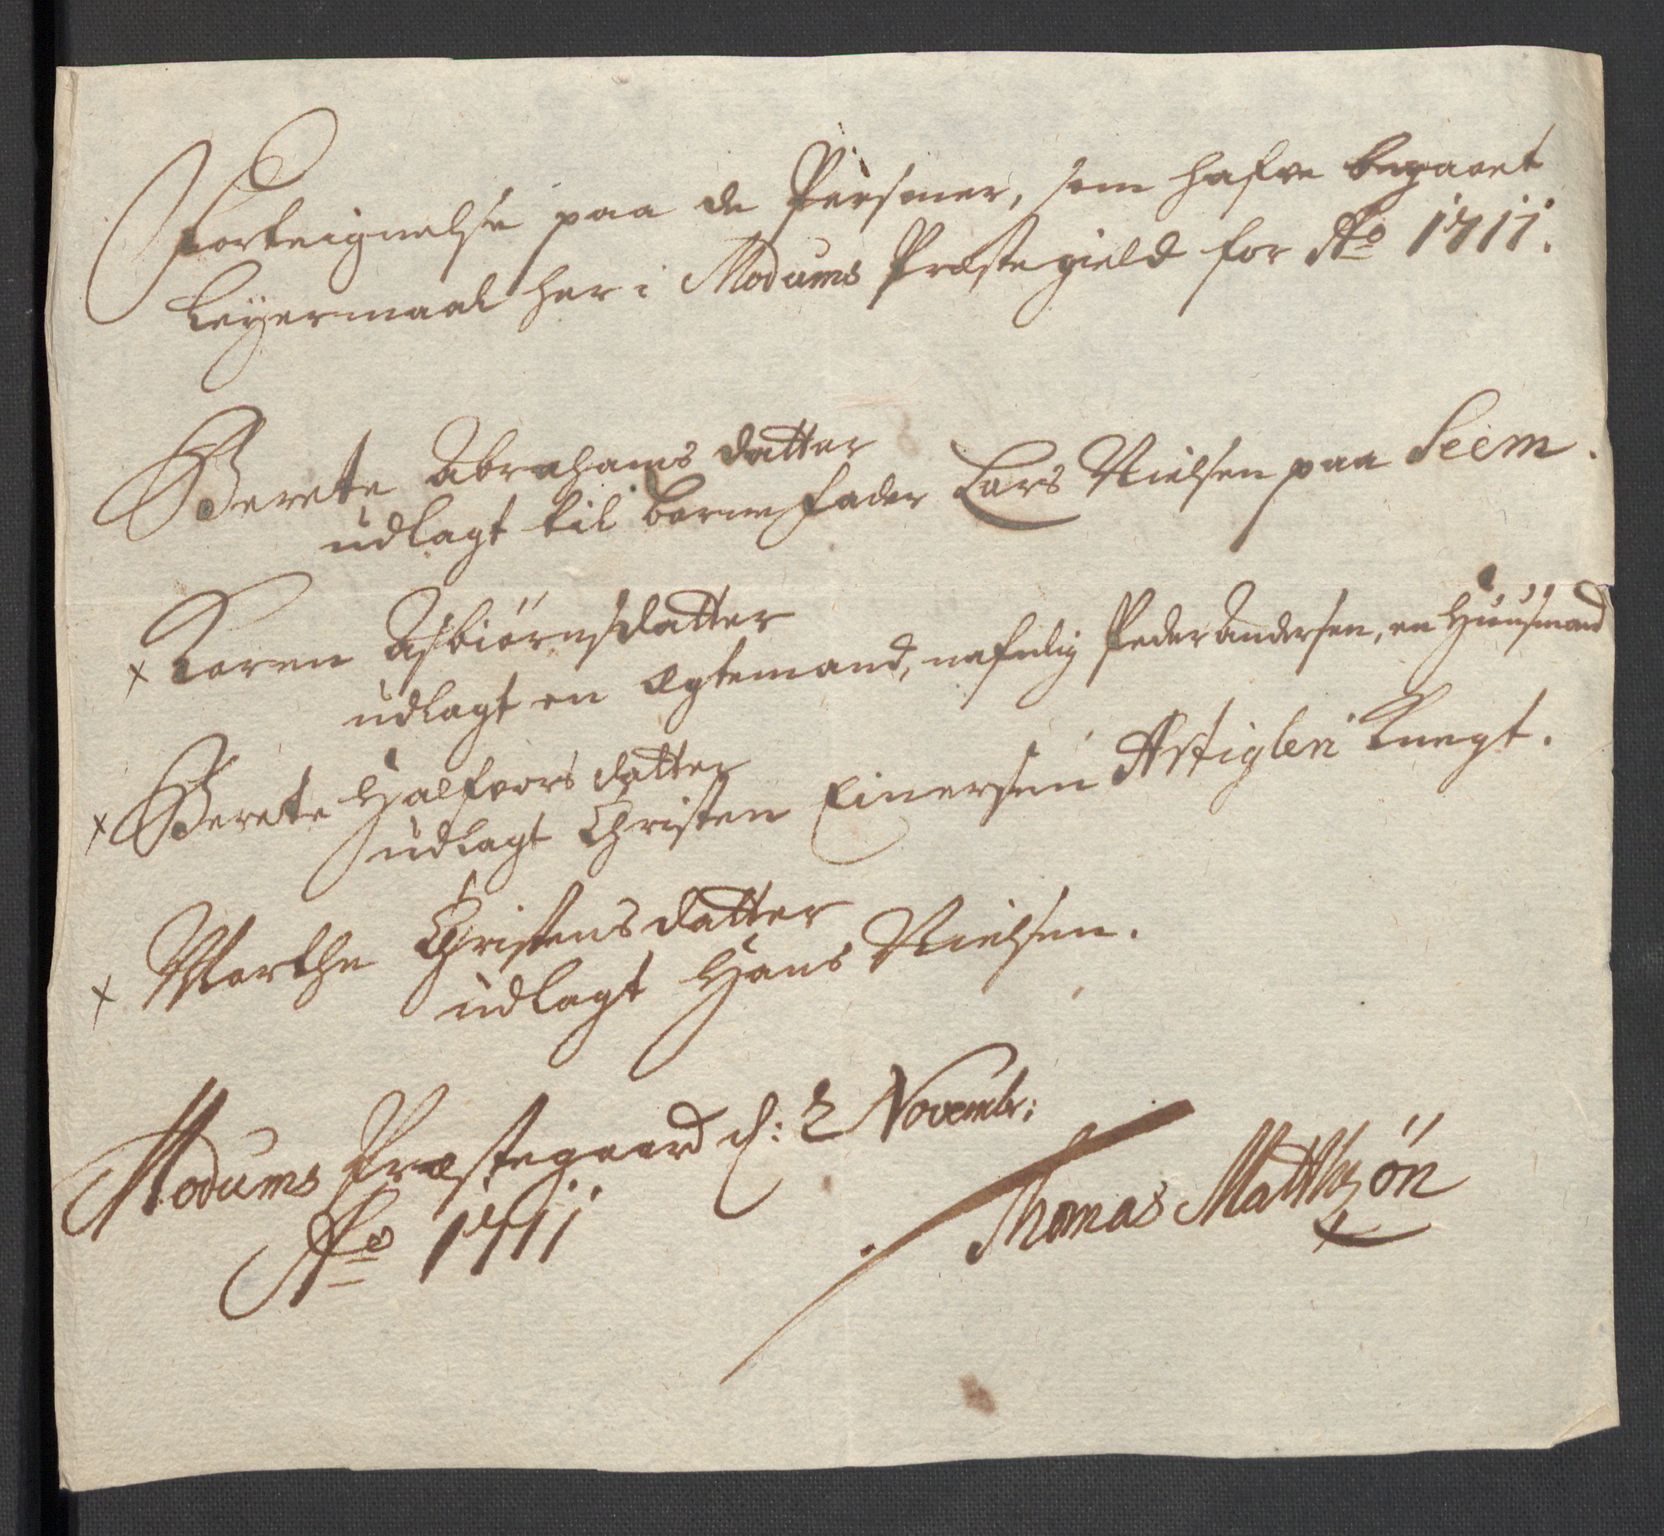 Forteignelse paa de Persouner, som hafve begaaet
Leyermaal her i Modums Præstegield for Ao 1711.
Berete Abrahams datter
udlagt til barnefader Lars Nielsen paa Seem.
x Karen Asbiørnsdatter
udlagt en Ægtemand, nafnlig Peder Andersen, en Huusmand
x Berete Halfvors datter
udlagt Christen Einersen Artigleri Knegt.
x Marthe Christens datter
udlagt Hans Nielsen.
Modums Præstegaard d: 2 Novembr:
Ao 1711
Thomas Matthsøn